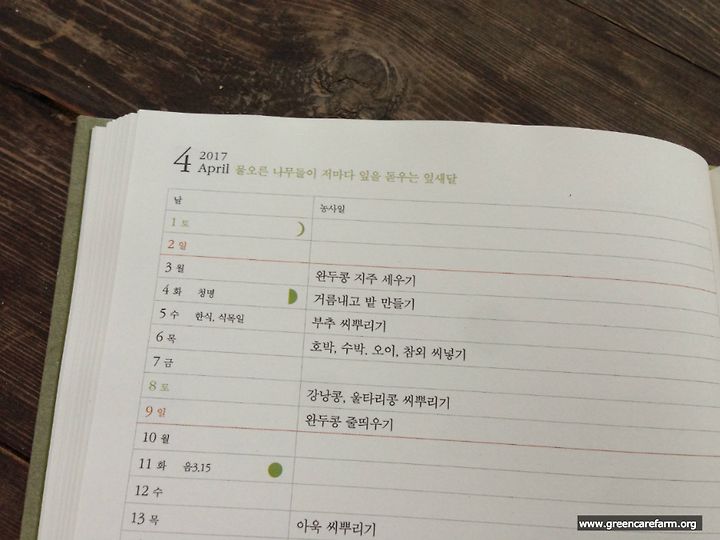 4 2017
April 물오른 나무들이 저마다 잎을 돋우는 잎새달
날 농사일
1 토
2 일
3 월 완두콩 지주 세우기
4 화 청명 거름내고 밭 만들기
5 수 한식, 식목일 부추 씨뿌리기
6 목 호박, 수박, 오이, 참외 씨넣기
7 금
8 토 강낭콩, 울타리콩 씨뿌리기
9 일 완두콩 줄띄우기
10 월
11 화 음3.15
12 수
13 목 아욱 씨뿌리기
www.greencarefarm.org